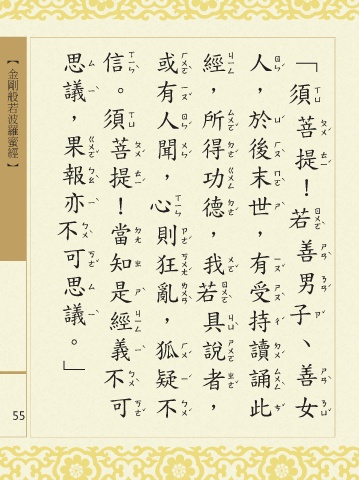 「須菩提！若善男子、善女
人，於後末世，有受持讀誦此
經，所得功德，我若具說者，
或有人聞，心則狂亂，狐疑不
信。須菩提！當知是經義不可
思議，果報亦不可思議。」
【金剛般若波羅蜜經】
55